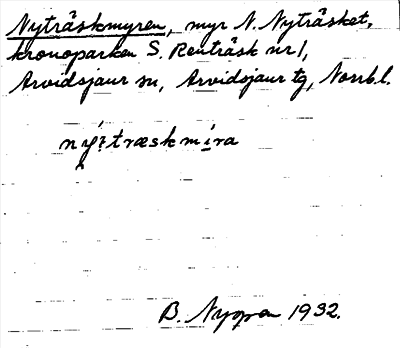 Nyträskmyren, myr N. Nyträsket,
kronoparken S. Renträsk nr 1,
Arvidsjaur sn, Arvidsjaur tg, Norrb.l.
1932.